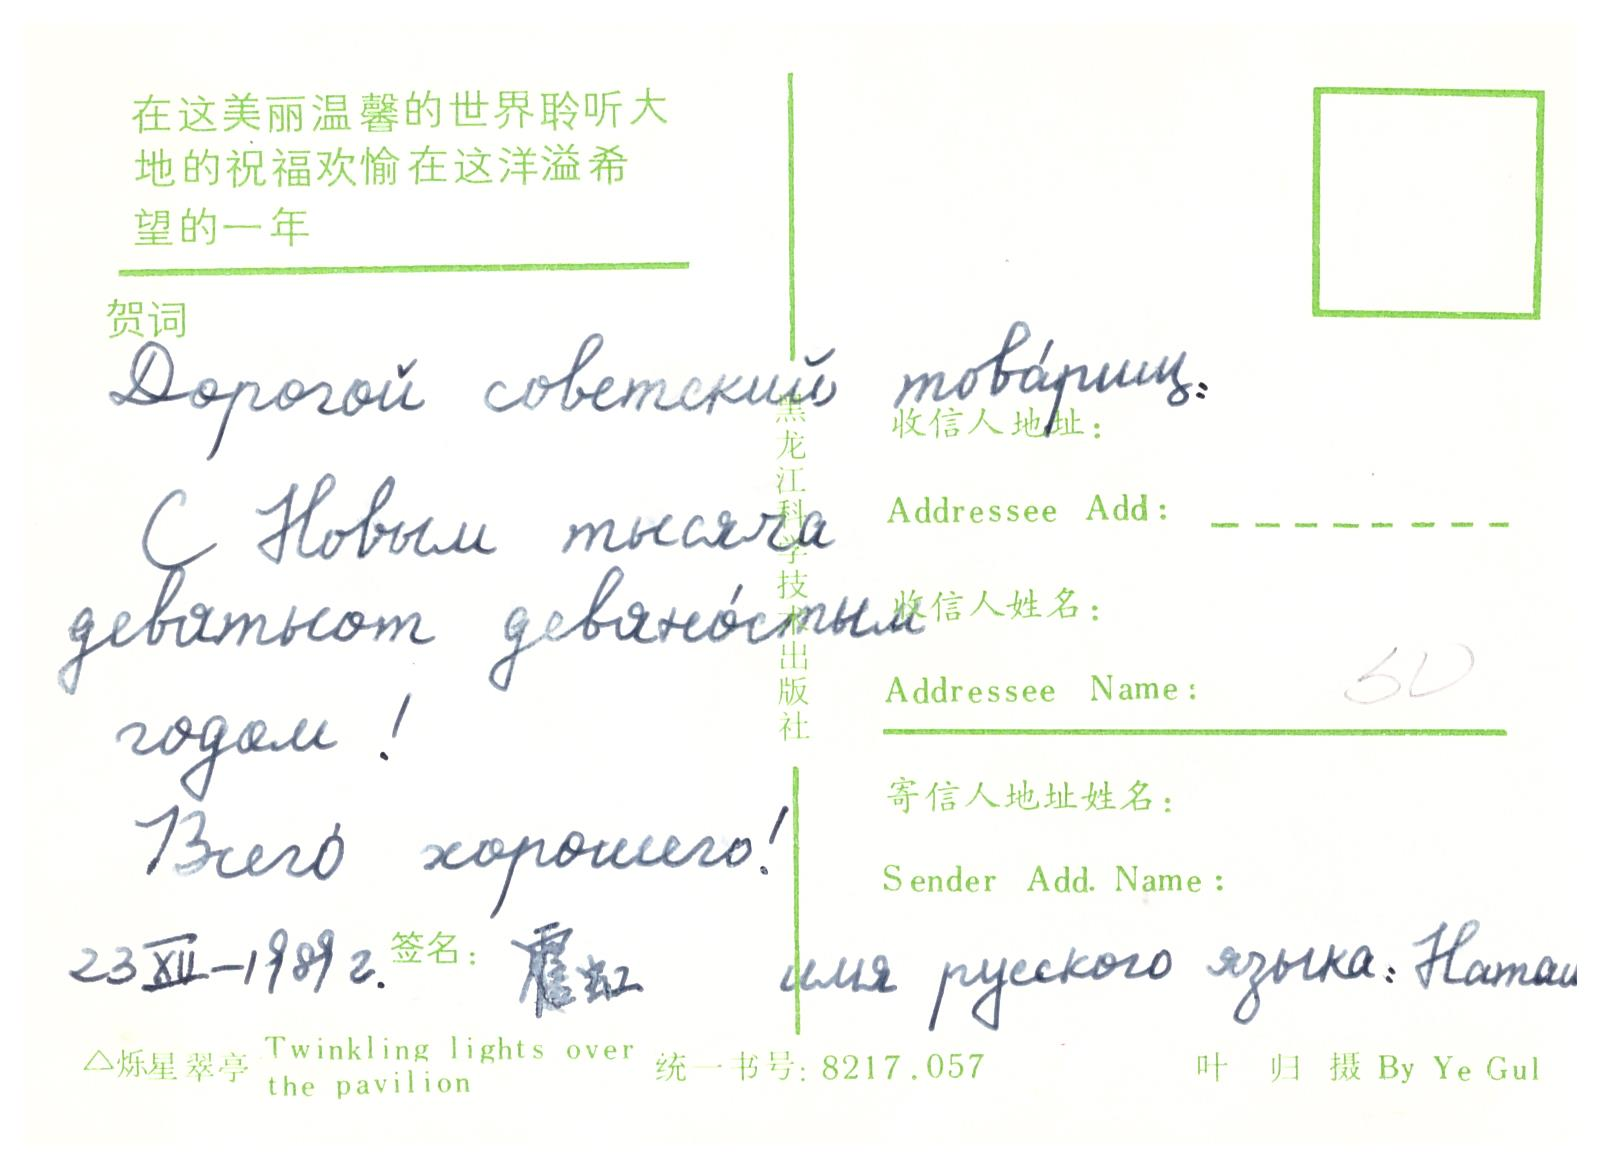 在这美丽温馨的世界聆听大
地的祝福欢愉在这洋溢希
望的一年
贺词
Дорогой советский това́рищ:
С Новым тысяча
девятьсот девяно́стым
годом!
Всего́ хорошего!
23 XII—1989 г. 签名: 霍红 имя русского языка: Наташ
黑龙江科学技术出版社
收信人地址:
Addressee Add:
收信人姓名:
Addressee Name:
50
寄信人地址姓名:
Sender Add. Name:
△烁星翠亭 Twinkling lights over
the pavilion
统一书号: 8217.057
叶归摄 By Ye Gul